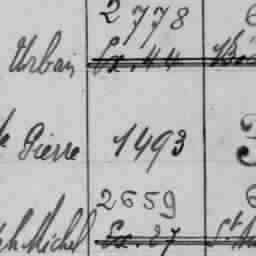 2778
Urbain Ex. 44
Pierre 1493
2659
Michel Ex. 27 St